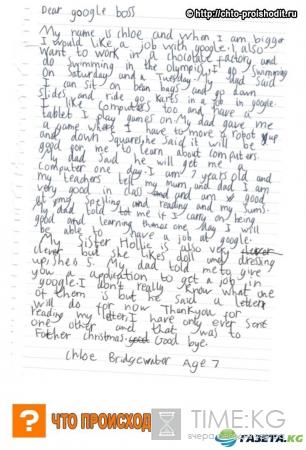 © http://chto-proishodit.ru
Dear google boss
My name is chloe and when I am bigger
I would like a job with google. I also
want to work in a chocolate factory and
do swimming in the olympics. I go swimming
on Saturday and a Tuesday. My dad said
I can sit on bean bags and go down
slides and ride go karts in a job in google.
I like computers too and have a
tablet I play games on. My dad gave me
a game where I have to move a robot up
and down squares, he said it will be
good for me to learn about computers.
My dad said he will get me a
computer one day. I am 7 years old and
my teachers tell my mum and dad I am
very good in class and am good
at my spelling and reading and my sums.
my dad told me if I carry on being
good and learning then one day I will
be able to have a job at google.
My sister Hollie is also very
clever but she likes dolls and dressing
up, she is 5. My dad told me to give
you a application to get a job in
google. I don't really know what one
of them is but he said a letter
will do for now. Thankyou for
reading my letter, I have only ever sent
one other and that was to
Father christmas. Good bye.
Chloe Bridgewater Age 7
? ЧТО ПРОИСХОД
TIME.KG
GАЗЕТА.KG